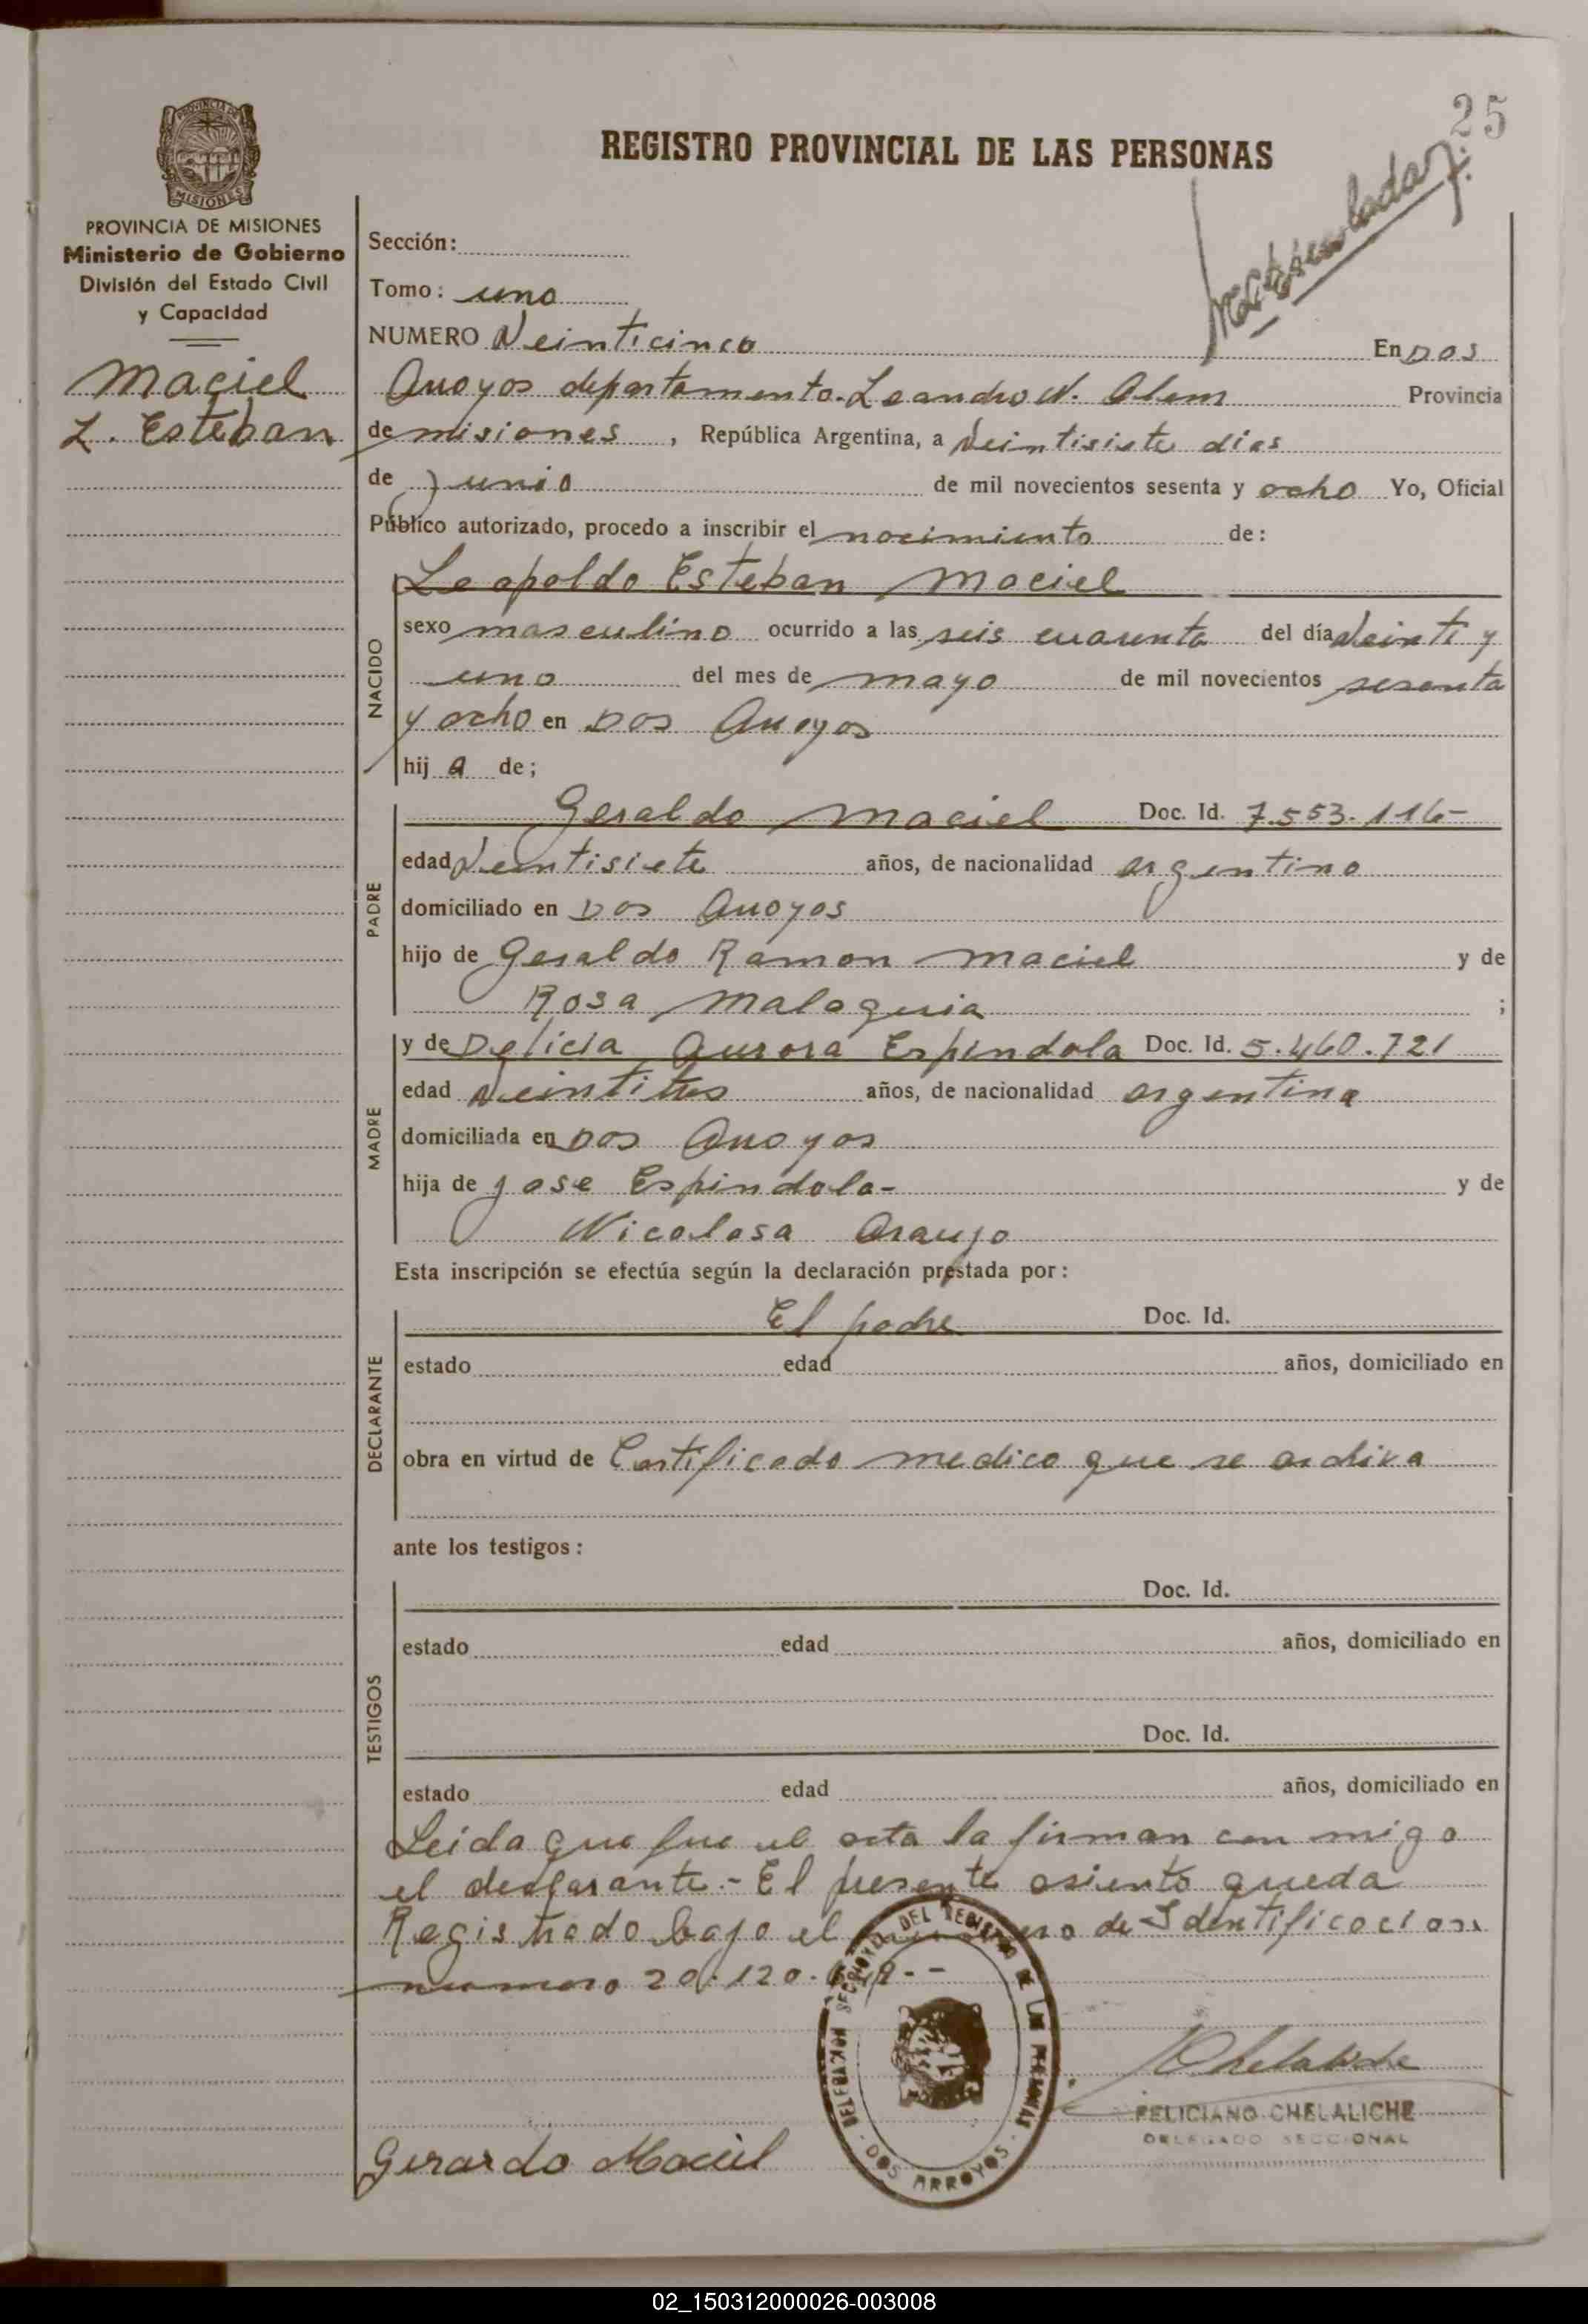 25
REGISTRO PROVINCIAL DE LAS PERSONAS
PROVINCIA DE MISIONES
MISIONES
PROVINCIA DE MISIONES
Ministerio de Gobierno
División del Estado Civil
y Capacidad
Maciel
L. Esteban
Sección:
Tomo: uno
NUMERO Veinticinco En Dos
Arroyos departamento Leandro N. Alem Provincia
de misiones, República Argentina, a Veintisiete dias
de Junio de mil novecientos sesenta y ocho Yo, Oficial
Público autorizado, procedo a inscribir el nacimiento de:
NACIDO
Leopoldo Esteban Maciel
sexo masculino ocurrido a las seis cuarenta del día Veinti y
uno del mes de mayo de mil novecientos sesenta
y ocho en Dos Arroyos
hij a de;
PADRE
Geraldo Maciel Doc. Id. 7.553.116-
edad Veintisiete años, de nacionalidad argentino
domiciliado en Dos Arroyos
hijo de Geraldo Ramon Maciel y de
Rosa Malaquia ;
MADRE
y de Delicia Aurora Espindola Doc. Id. 5.460.721
edad Veintitres años, de nacionalidad argentina
domiciliada en Dos Arroyos
hija de Jose Espindola- y de
Nicolasa Araujo
Esta inscripción se efectúa según la declaración prestada por:
DECLARANTE
El padre Doc. Id.
estado edad años, domiciliado en
obra en virtud de Certificado medico que se archiva
ante los testigos:
TESTIGOS
Doc. Id.
estado edad años, domiciliado en
Doc. Id.
estado edad años, domiciliado en
Leida que fue el acta la firman con migo
el declarante.- El presente asiento queda
Registrado bajo el de Identificacion
numero 20.120.
DELEGACION SECCIONAL DEL REGISTRO DE LAS PERSONAS - DOS ARROYOS -
Chelaliche
FELICIANO CHELALICHE
DELEGADO SECCIONAL
Gerardo Maciel
02_150312000026-003008